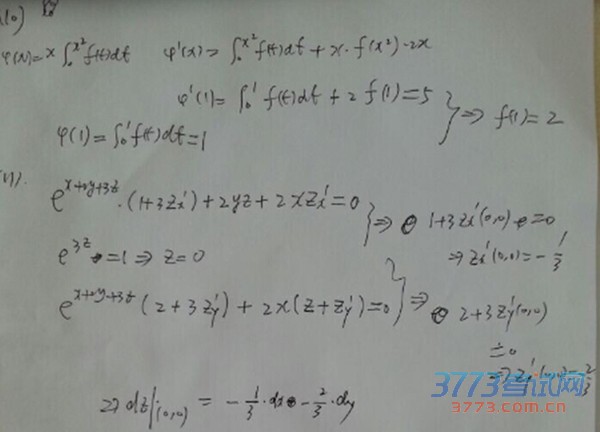 (10)
φ(x)=x∫₀^{x²}f(t)dt φ'(x)=∫₀^{x²}f(t)dt + x·f(x²)·2x
φ'(1)=∫₀¹ f(t)dt + 2f(1)=5
⇒ f(1)=2
φ(1)=∫₀¹f(t)dt=1
(11).
e^{x+2y+3z}·(1+3z'ₓ)+2yz+2xz'ₓ=0
⇒ 1+3z'ₓ(0,0)=0
e^{3z}=1 ⇒ z=0
⇒ z'ₓ(0,0)=-1/3
e^{x+2y+3z}(2+3z'y)+2x(z+z'y)=0
⇒ 2+3z'y(0,0)
=0
⇒ z'y(0,0)=-2/3
⇒ dz|(0,0) = -1/3·dx -2/3·dy
3773考试网
3773.com.cn